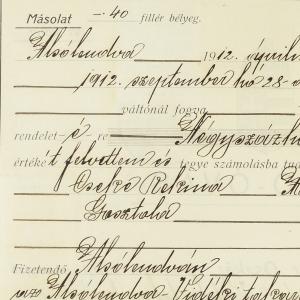 Másolat -.40 fillér bélyeg.
Alsólendva 1912. április
1912. szeptember hó 28-
váltónál fogva
rendelet-é-re Négyszázh
értéké t felvettem és tegye számolásba tud
Cseke Rekina
Gosztola
Fizetendő Alsólendván
Alsólendva-Vidéki takar